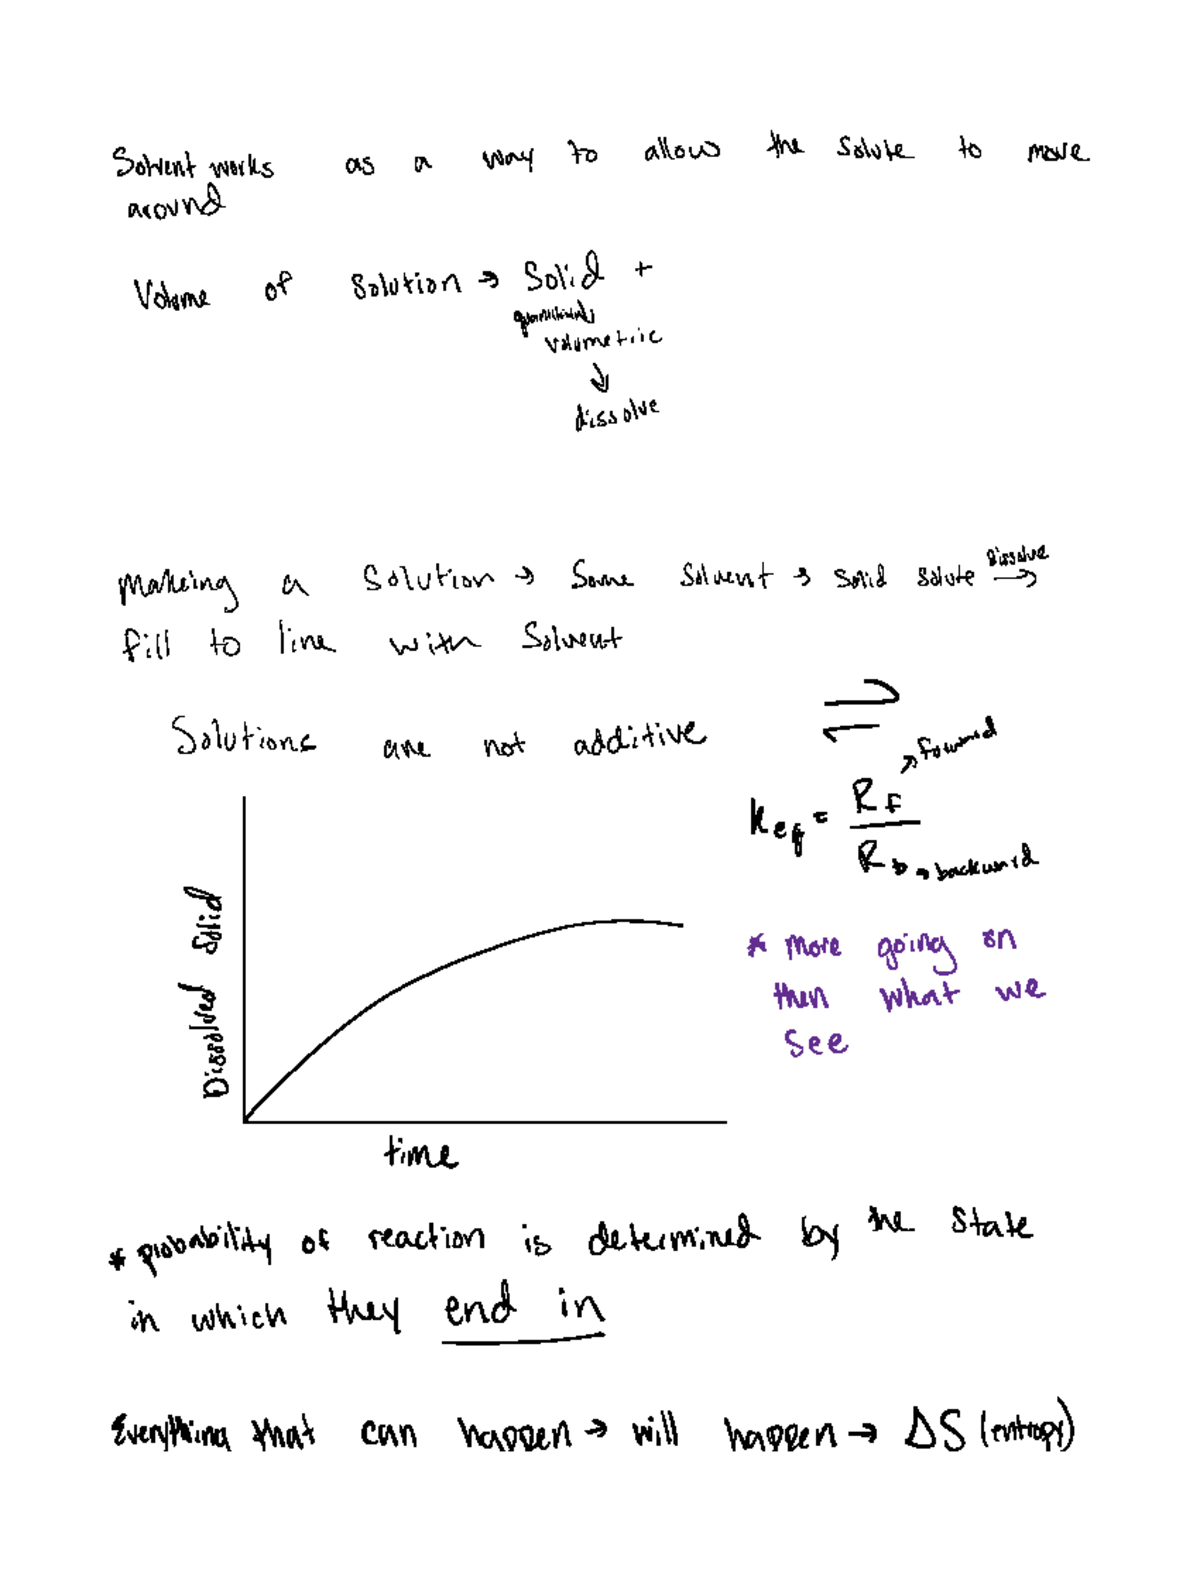 Solvent works as a way to allow the solute to move
around
Volume of solution → Solid +
volumetric
↓
dissolve
Making a solution → Some solvent → solid solute dissolve →
fill to line with solvent
Solutions are not additive
⇌
Keq = RF / Rb
→ forward
→ backward
Dissolved Solid
time
* more going on
then what we
see
* probability of reaction is determined by the state
in which they end in
Everything that can happen → will happen → ΔS (entropy)